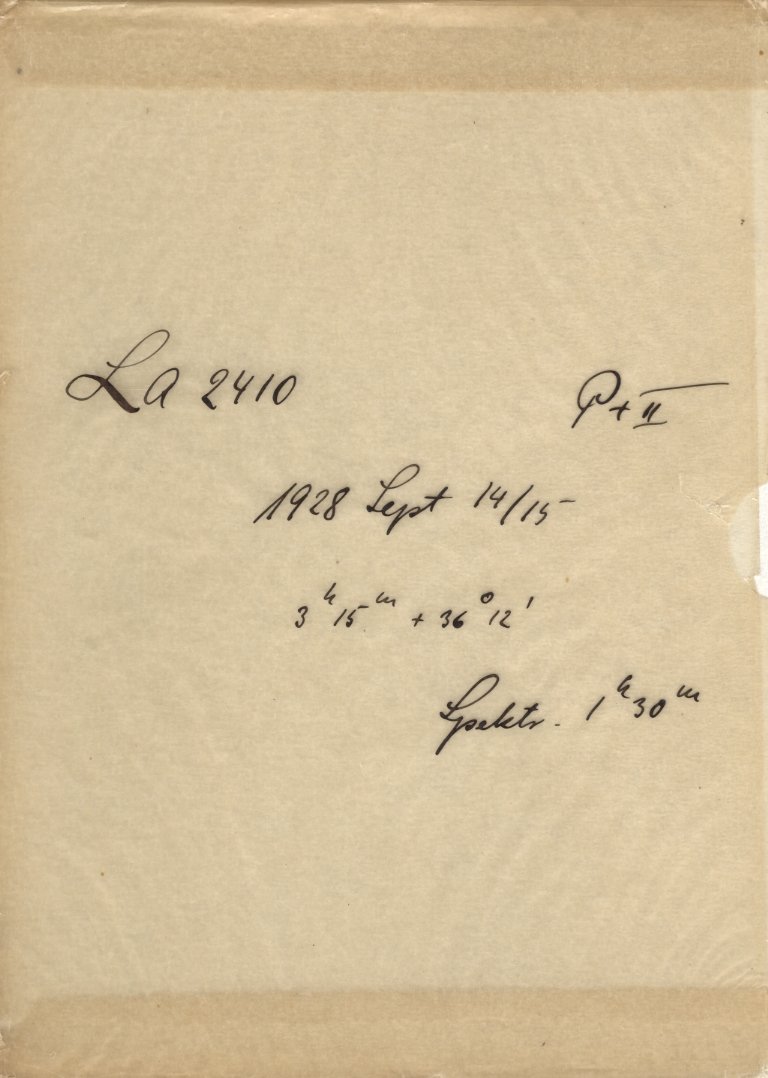 La 2410 P+II
1928 Sept 14/15
3ʰ 15ᵐ + 36° 12'
Spektr. 1ʰ 30ᵐ